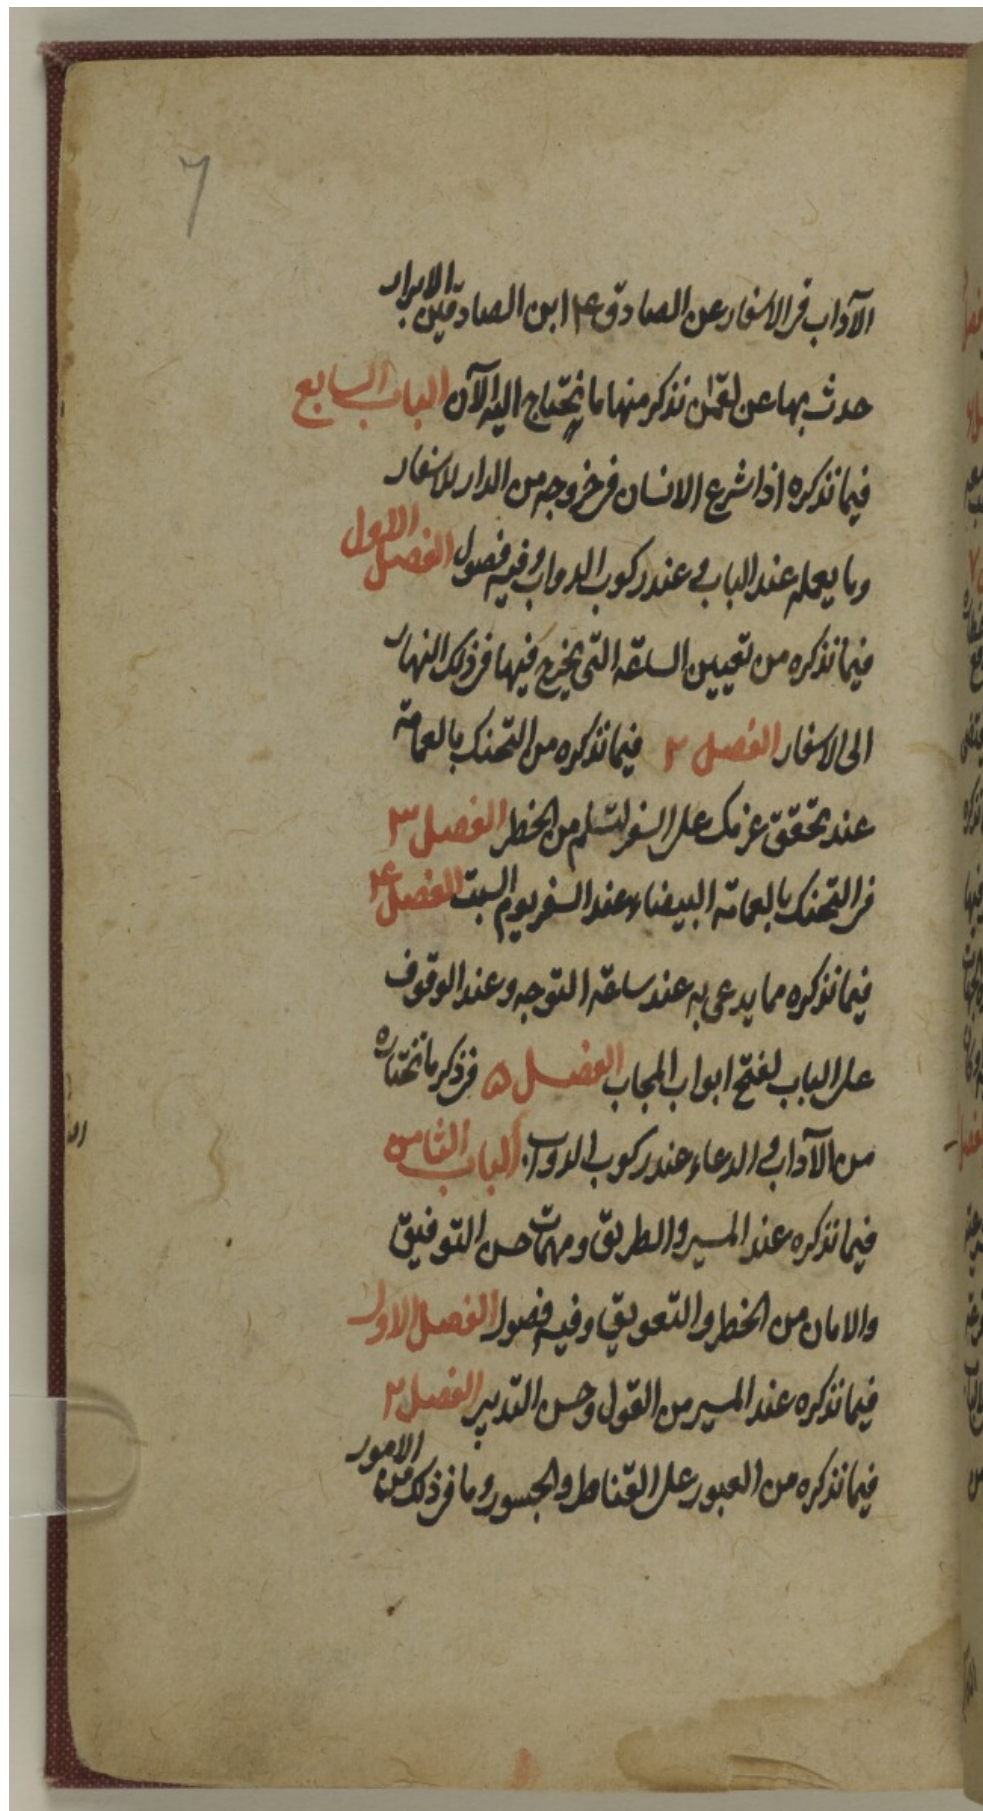 7
الآداب فى الاسفار عن الصادق ع ابن الصادقين الابرار
حدث بها عن لقمن نذكر منها ما يحتاج اليه الآن الباب السابع
فيما نذكره اذا شرع الانسان فى خروجه من الدار للاسفار
وما يعمله عند الباب و عند ركوب الدواب و فيه فصول الفصل الاول
فيما نذكره من تعيين الساعة التى يخرج فيها فى ذلك النهار
الى الاسفار الفصل ٢ فيما نذكره من التحنك بالعمامة
عند تحقق عزمك على السفر لتسلم من الخطر الفصل ٣
فى التحنك بالعمامة البيضاء عند السفر يوم السبت الفصل ۴
فيما نذكره مما يدعى به عند ساعة التوجه و عند الوقوف
على الباب لفتح ابواب المحاب الفصل ۵ فى ذكر ما نختاره
من الآداب و الدعاء عند ركوب الدواب الباب الثامن
فيما نذكره عند المسير والطريق و مهمات حسن التوفيق
والامان من الخطر والتعويق و فيه فصول الفصل الاول
فيما نذكره عند المسير من القول و حسن التدبير الفصل ٢
فيما نذكره من العبور على القناطر والجسور و ما فى ذلك من الامور